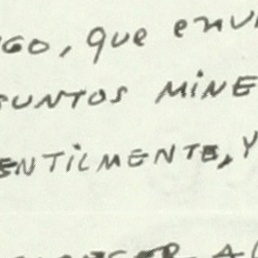 GO, que env
SUNTOS MINE
ENTILMENTE, Y